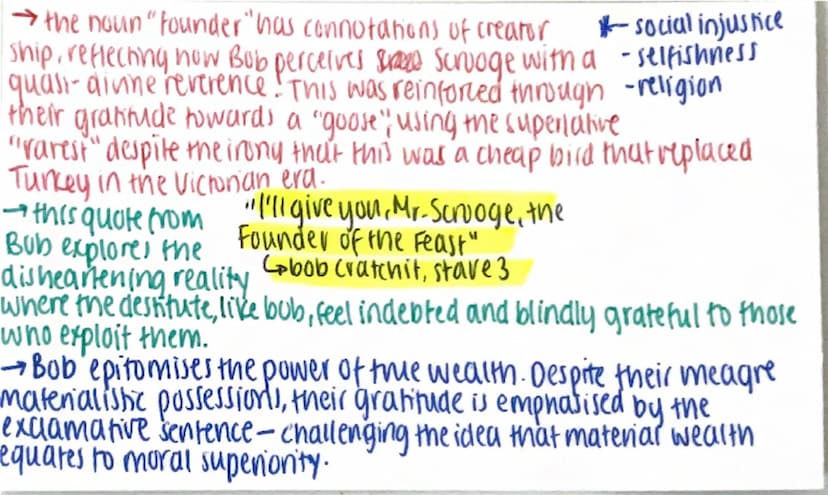 → the noun "founder" has connotations of creator
ship, reflecting how Bob perceives Scrooge with a
quasi-divine reverence. This was reinforced through
their gratitude towards a "goose", using the superlative
"rarest" despite the irony that this was a cheap bird that replaced
Turkey in the Victorian era.
* - social injustice
- selfishness
- religion
"I'll give you, Mr. Scrooge, the
Founder of the Feast"
↳ bob cratchit, stave 3
→ this quote from
Bob explores the
disheartening reality
where the destitute, like bob, feel indebted and blindly grateful to those
who exploit them.
→ Bob epitomises the power of true wealth. Despite their meagre
materialistic possessions, their gratitude is emphasised by the
exclamative sentence - challenging the idea that material wealth
equates to moral superiority.